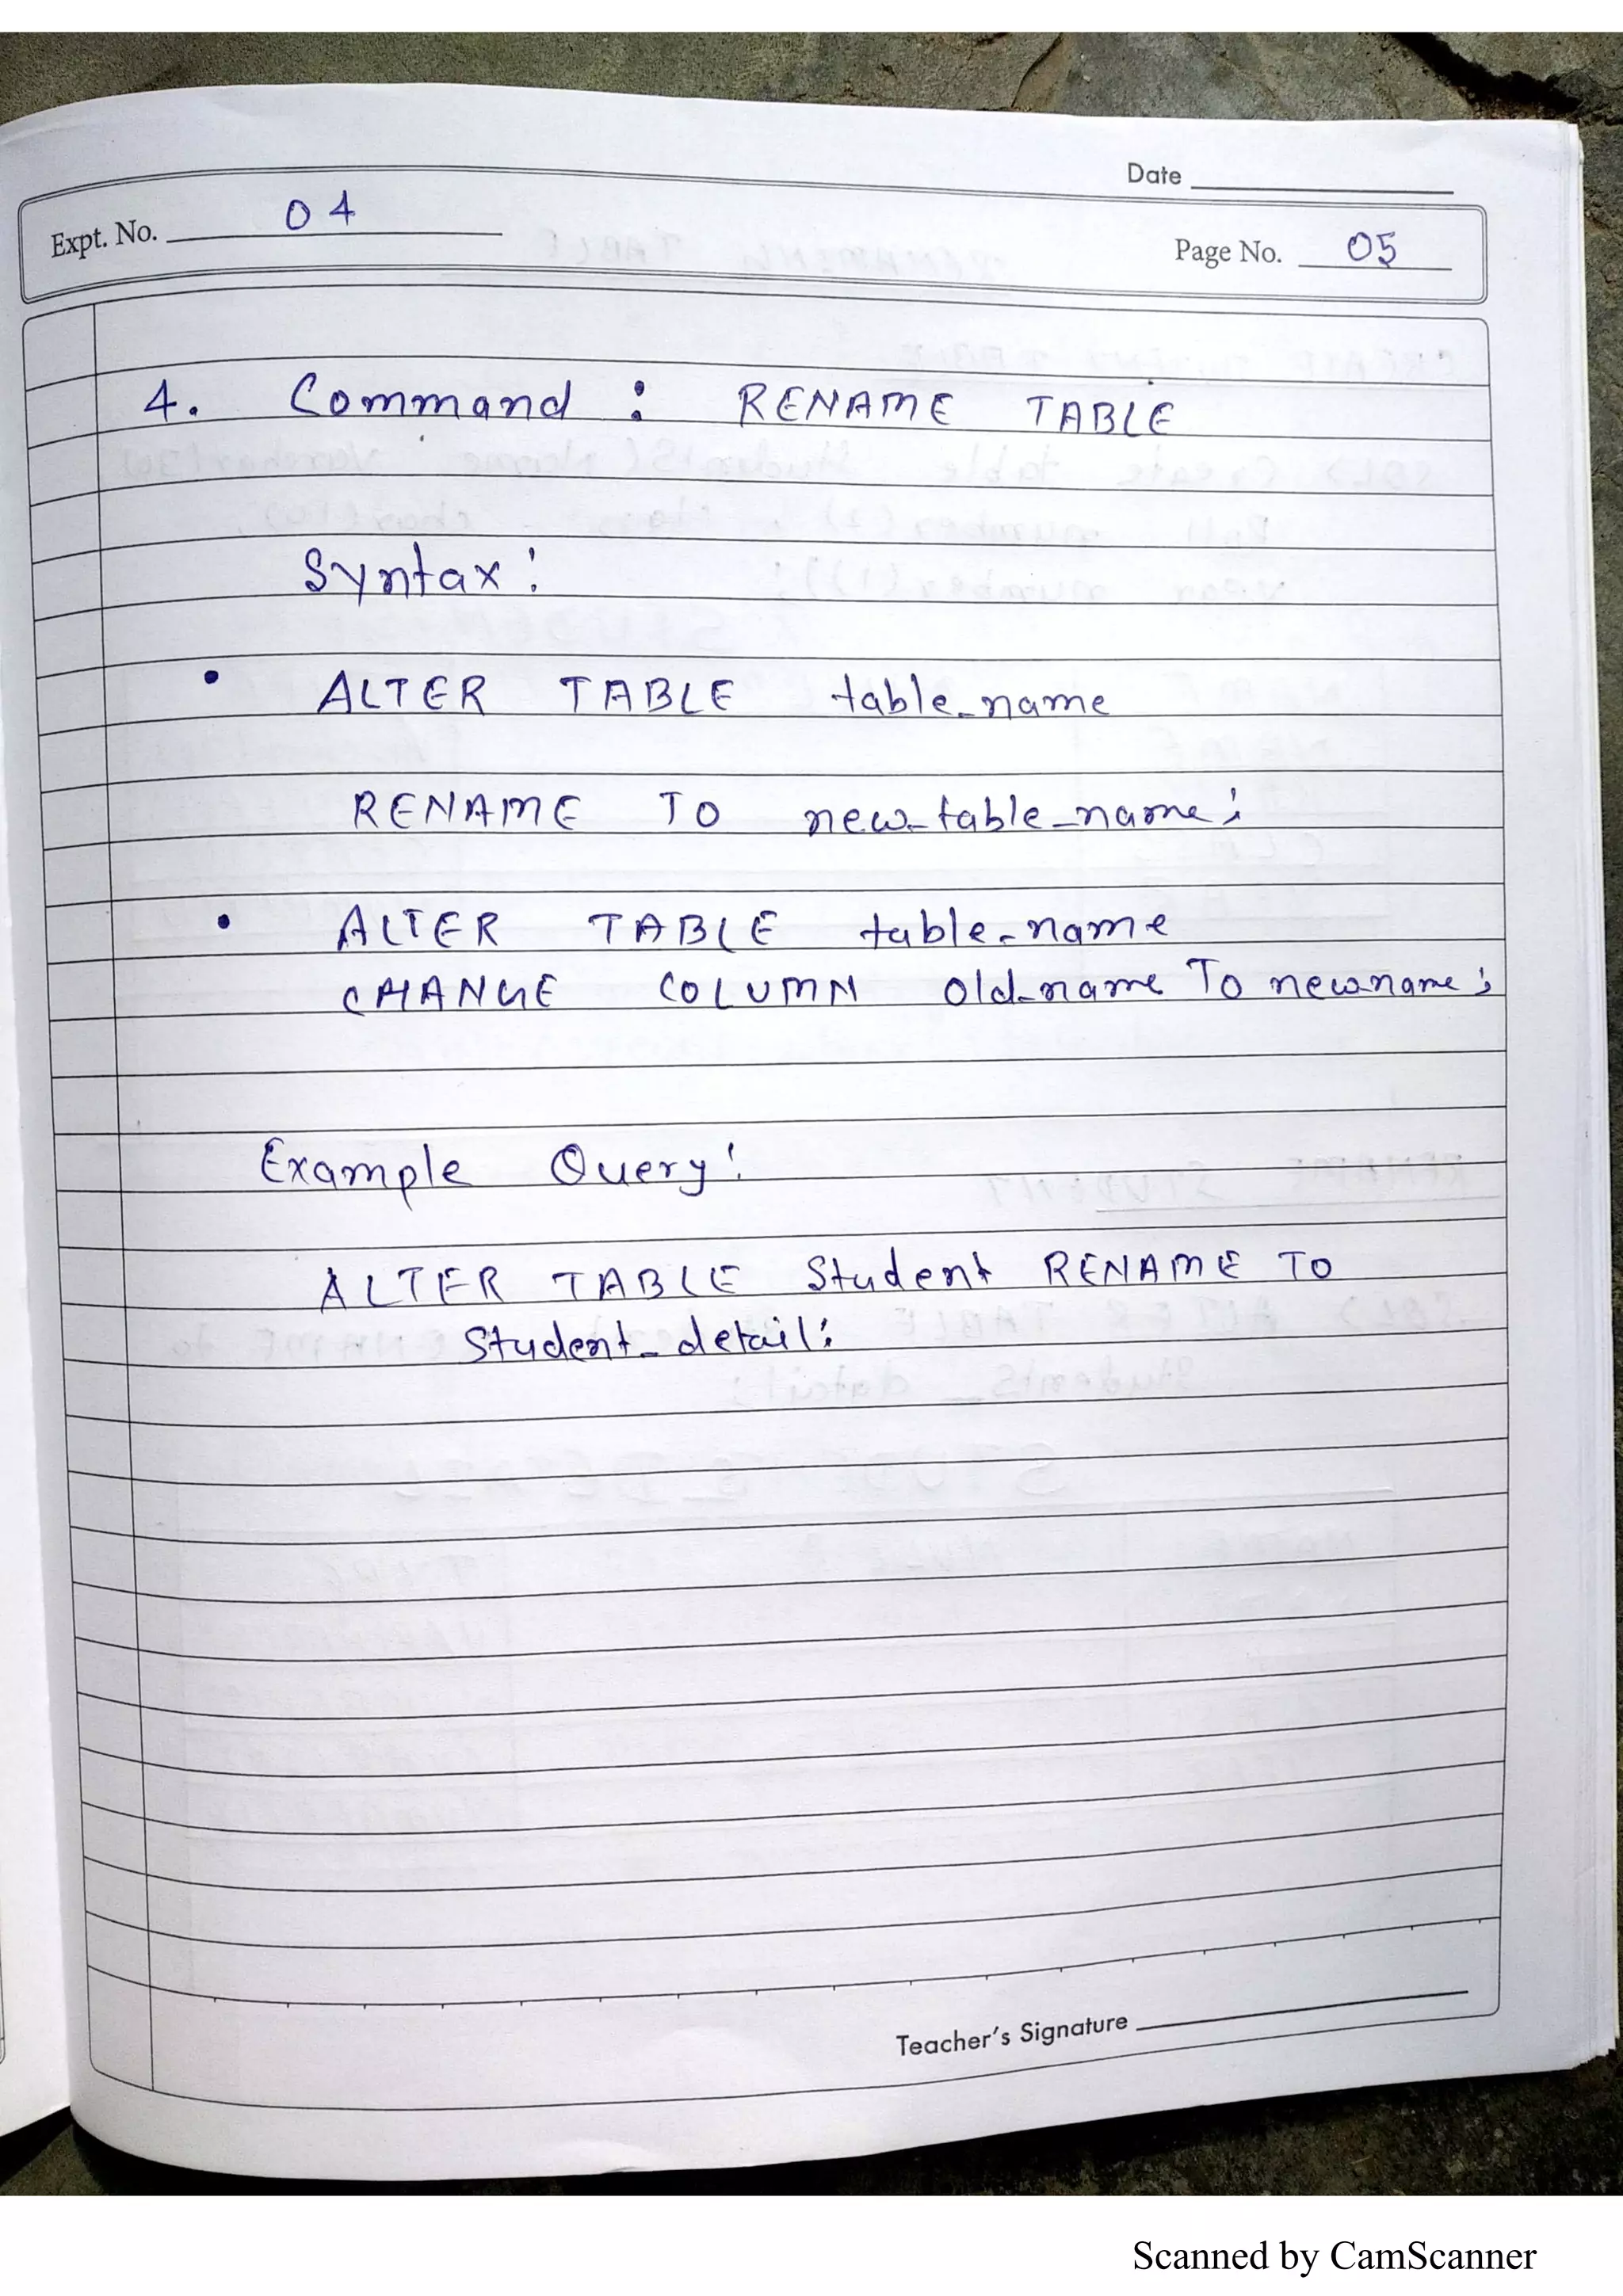 Date
Expt. No. 04
Page No. 05
4. Command : RENAME TABLE
Syntax :
• ALTER TABLE table_name
RENAME TO new_table_name;
• ALTER TABLE table_name
CHANGE COLUMN old_name To newname;
Example Query :
ALTER TABLE Student RENAME TO
Student_detail;
Teacher's Signature
Scanned by CamScanner